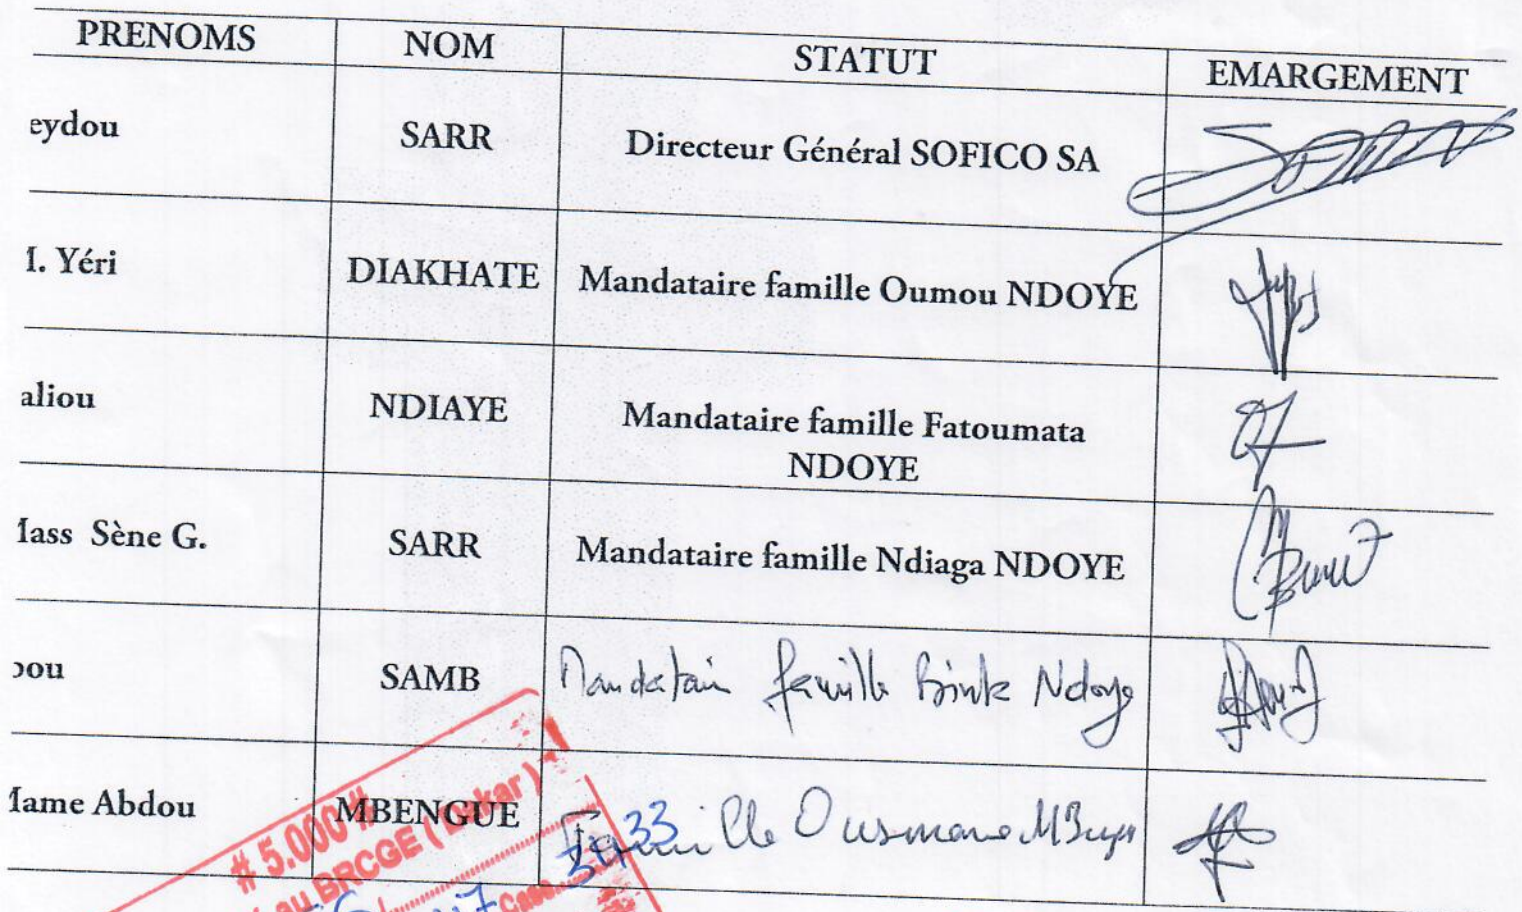 PRENOMS NOM STATUT EMARGEMENT
eydou SARR Directeur Général SOFICO SA
I. Yéri DIAKHATE Mandataire famille Oumou NDOYE
aliou NDIAYE Mandataire famille Fatoumata
NDOYE
lass Sène G. SARR Mandataire famille Ndiaga NDOYE
bou SAMB Mandatain famille Ndoye
lame Abdou MBENGUE Famille Ousmane
# 5.000 #
au BRCGE ( Dakar )
Case
33